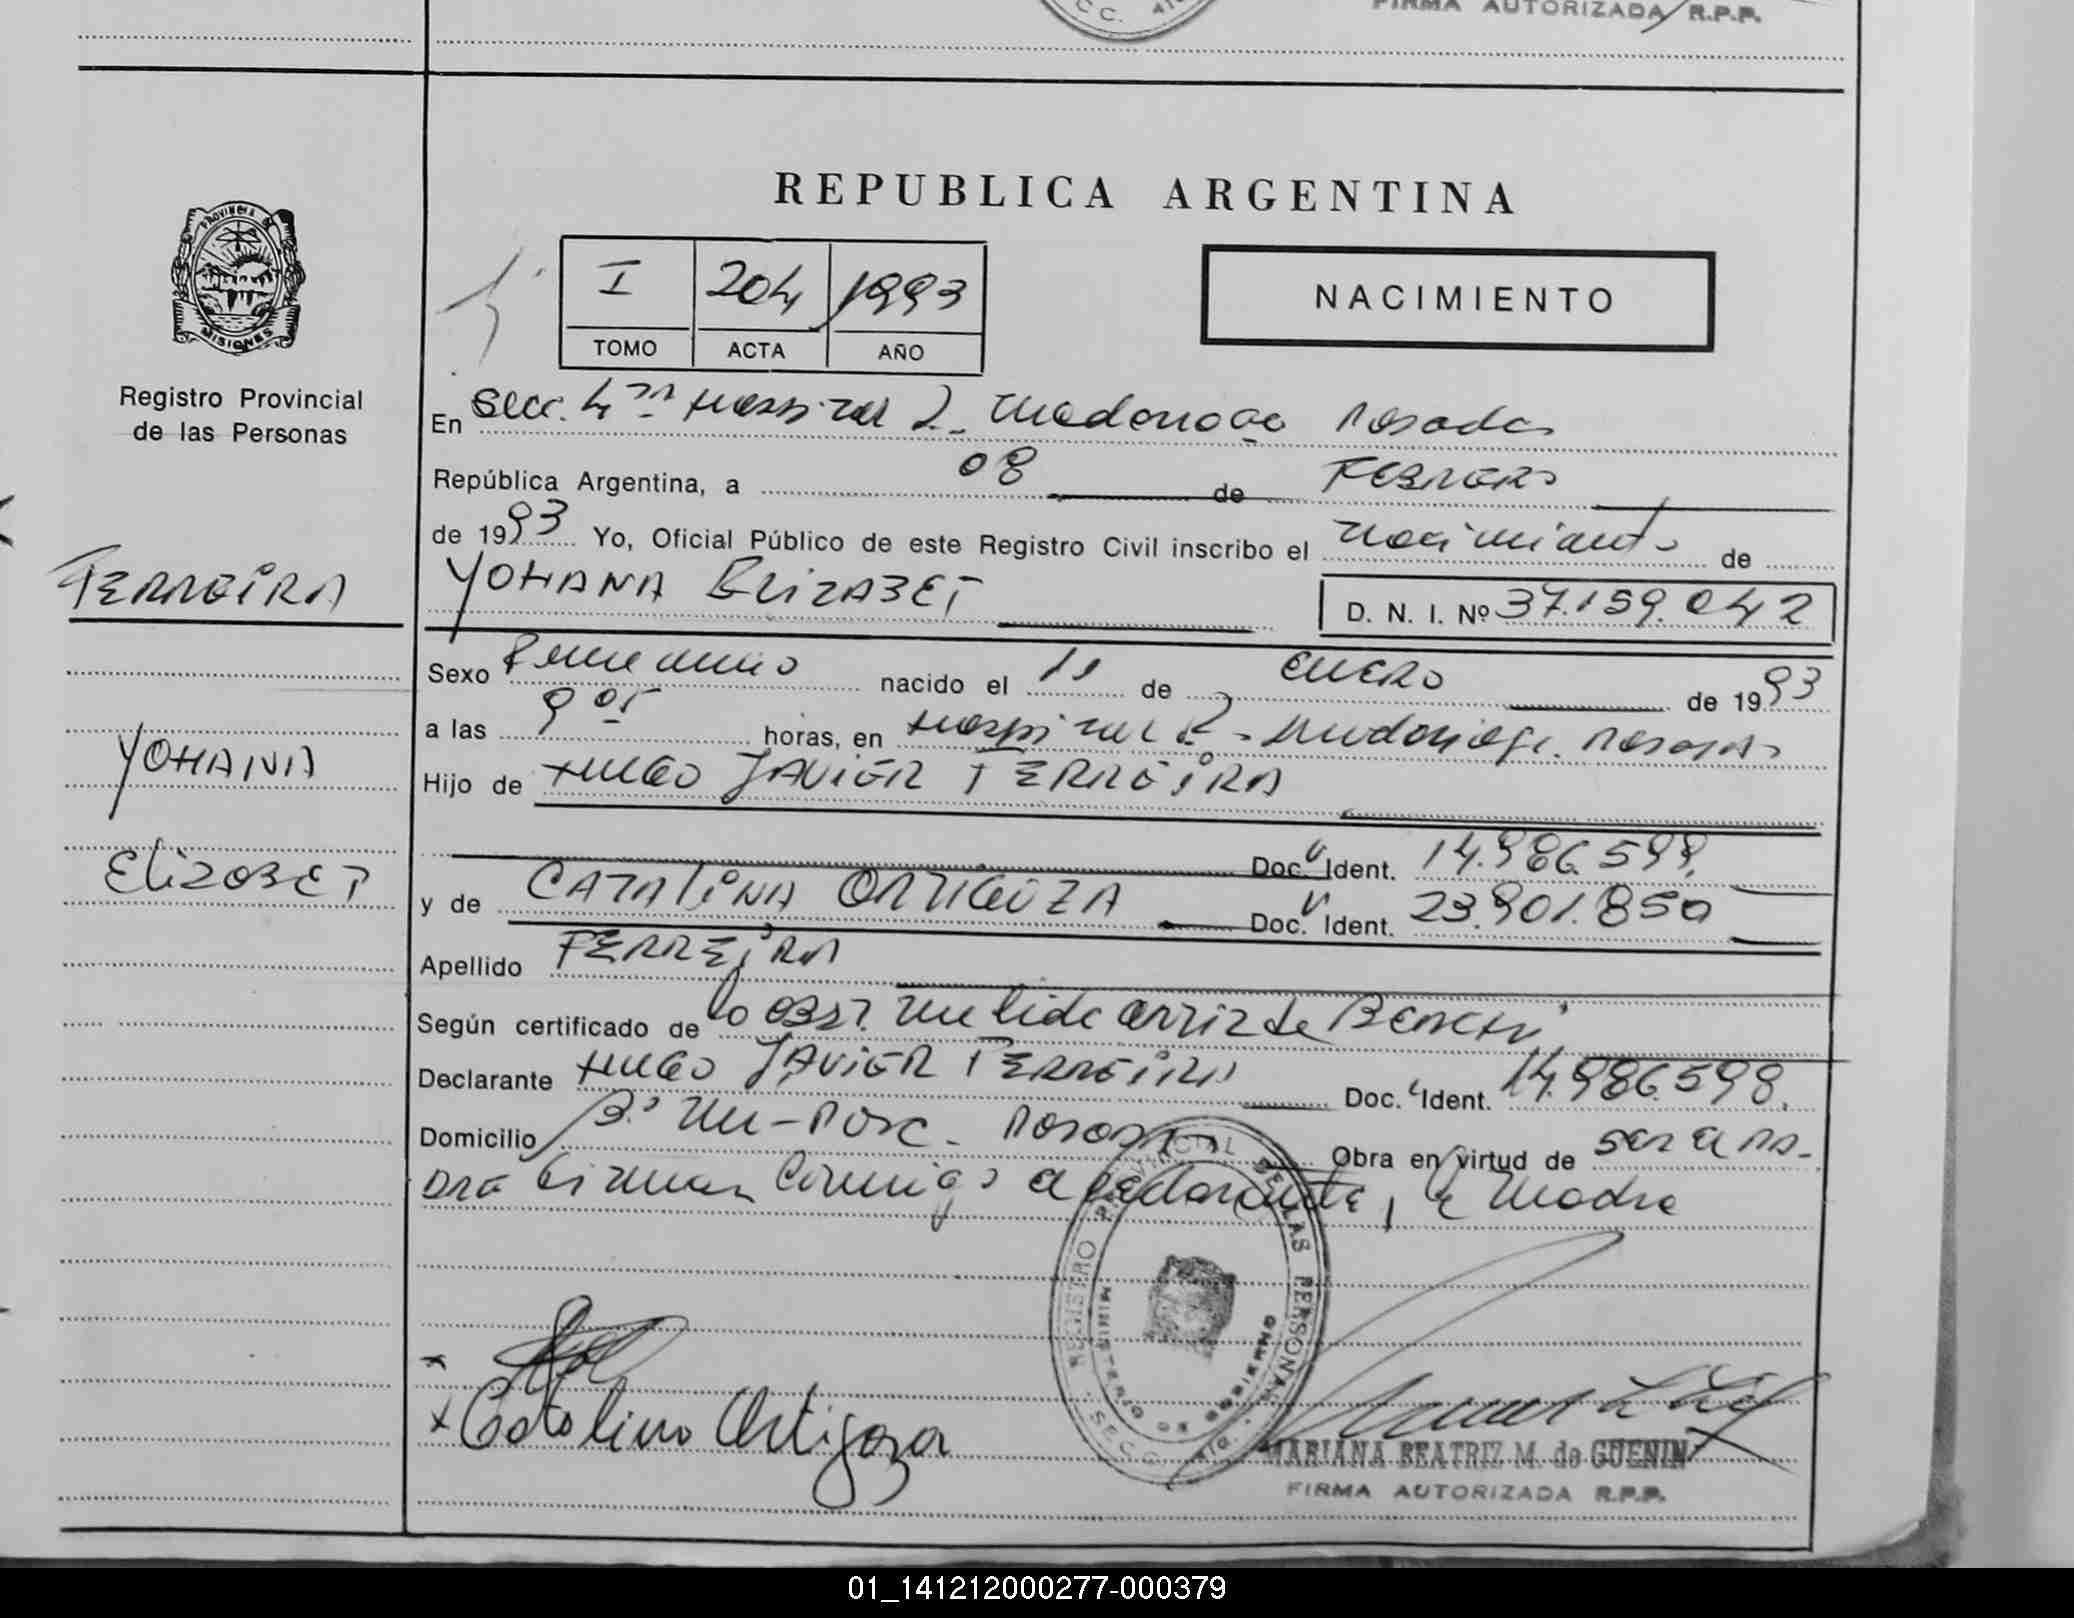 FIRMA AUTORIZADA R.P.P.
REPUBLICA ARGENTINA
PROVINCIA DE
MISIONES
I 204 1993
TOMO ACTA AÑO
NACIMIENTO
Registro Provincial
de las Personas
En Secc. 4ta Hospital R. Madariaga Posadas
República Argentina, a 08 de FEBRERO
de 1993 Yo, Oficial Público de este Registro Civil inscribo el nacimiento de
FERREIRA
YOHANA ELIZABET D. N. I. Nº 37.159.042
Sexo Femenino nacido el 11 de ENERO de 1993
a las 9 05 horas, en Hospital R. Madariaga. Posadas
YOHANA
Hijo de HUGO JAVIER FERREIRA
Doc. Ident. 14.986.598.
ELIZABET
y de CATALINA ORTIGOZA Doc. Ident. 23.901.850
Apellido FERREIRA
Según certificado de la OBST. de
Declarante HUGO JAVIER FERREIRA Doc. Ident. 14.986.598.
Domicilio Bº Posadas Obra en virtud de ser el pa-
dre firman conmigo el declarante, la madre
REGISTRO PROVINCIAL DE LAS PERSONAS
MINISTERIO DE GOBIERNO
SECC. 4ta.
x
x Catalina Ortigoza
MARIANA BEATRIZ M. de GUENIN
FIRMA AUTORIZADA R.P.P.
01_141212000277-000379